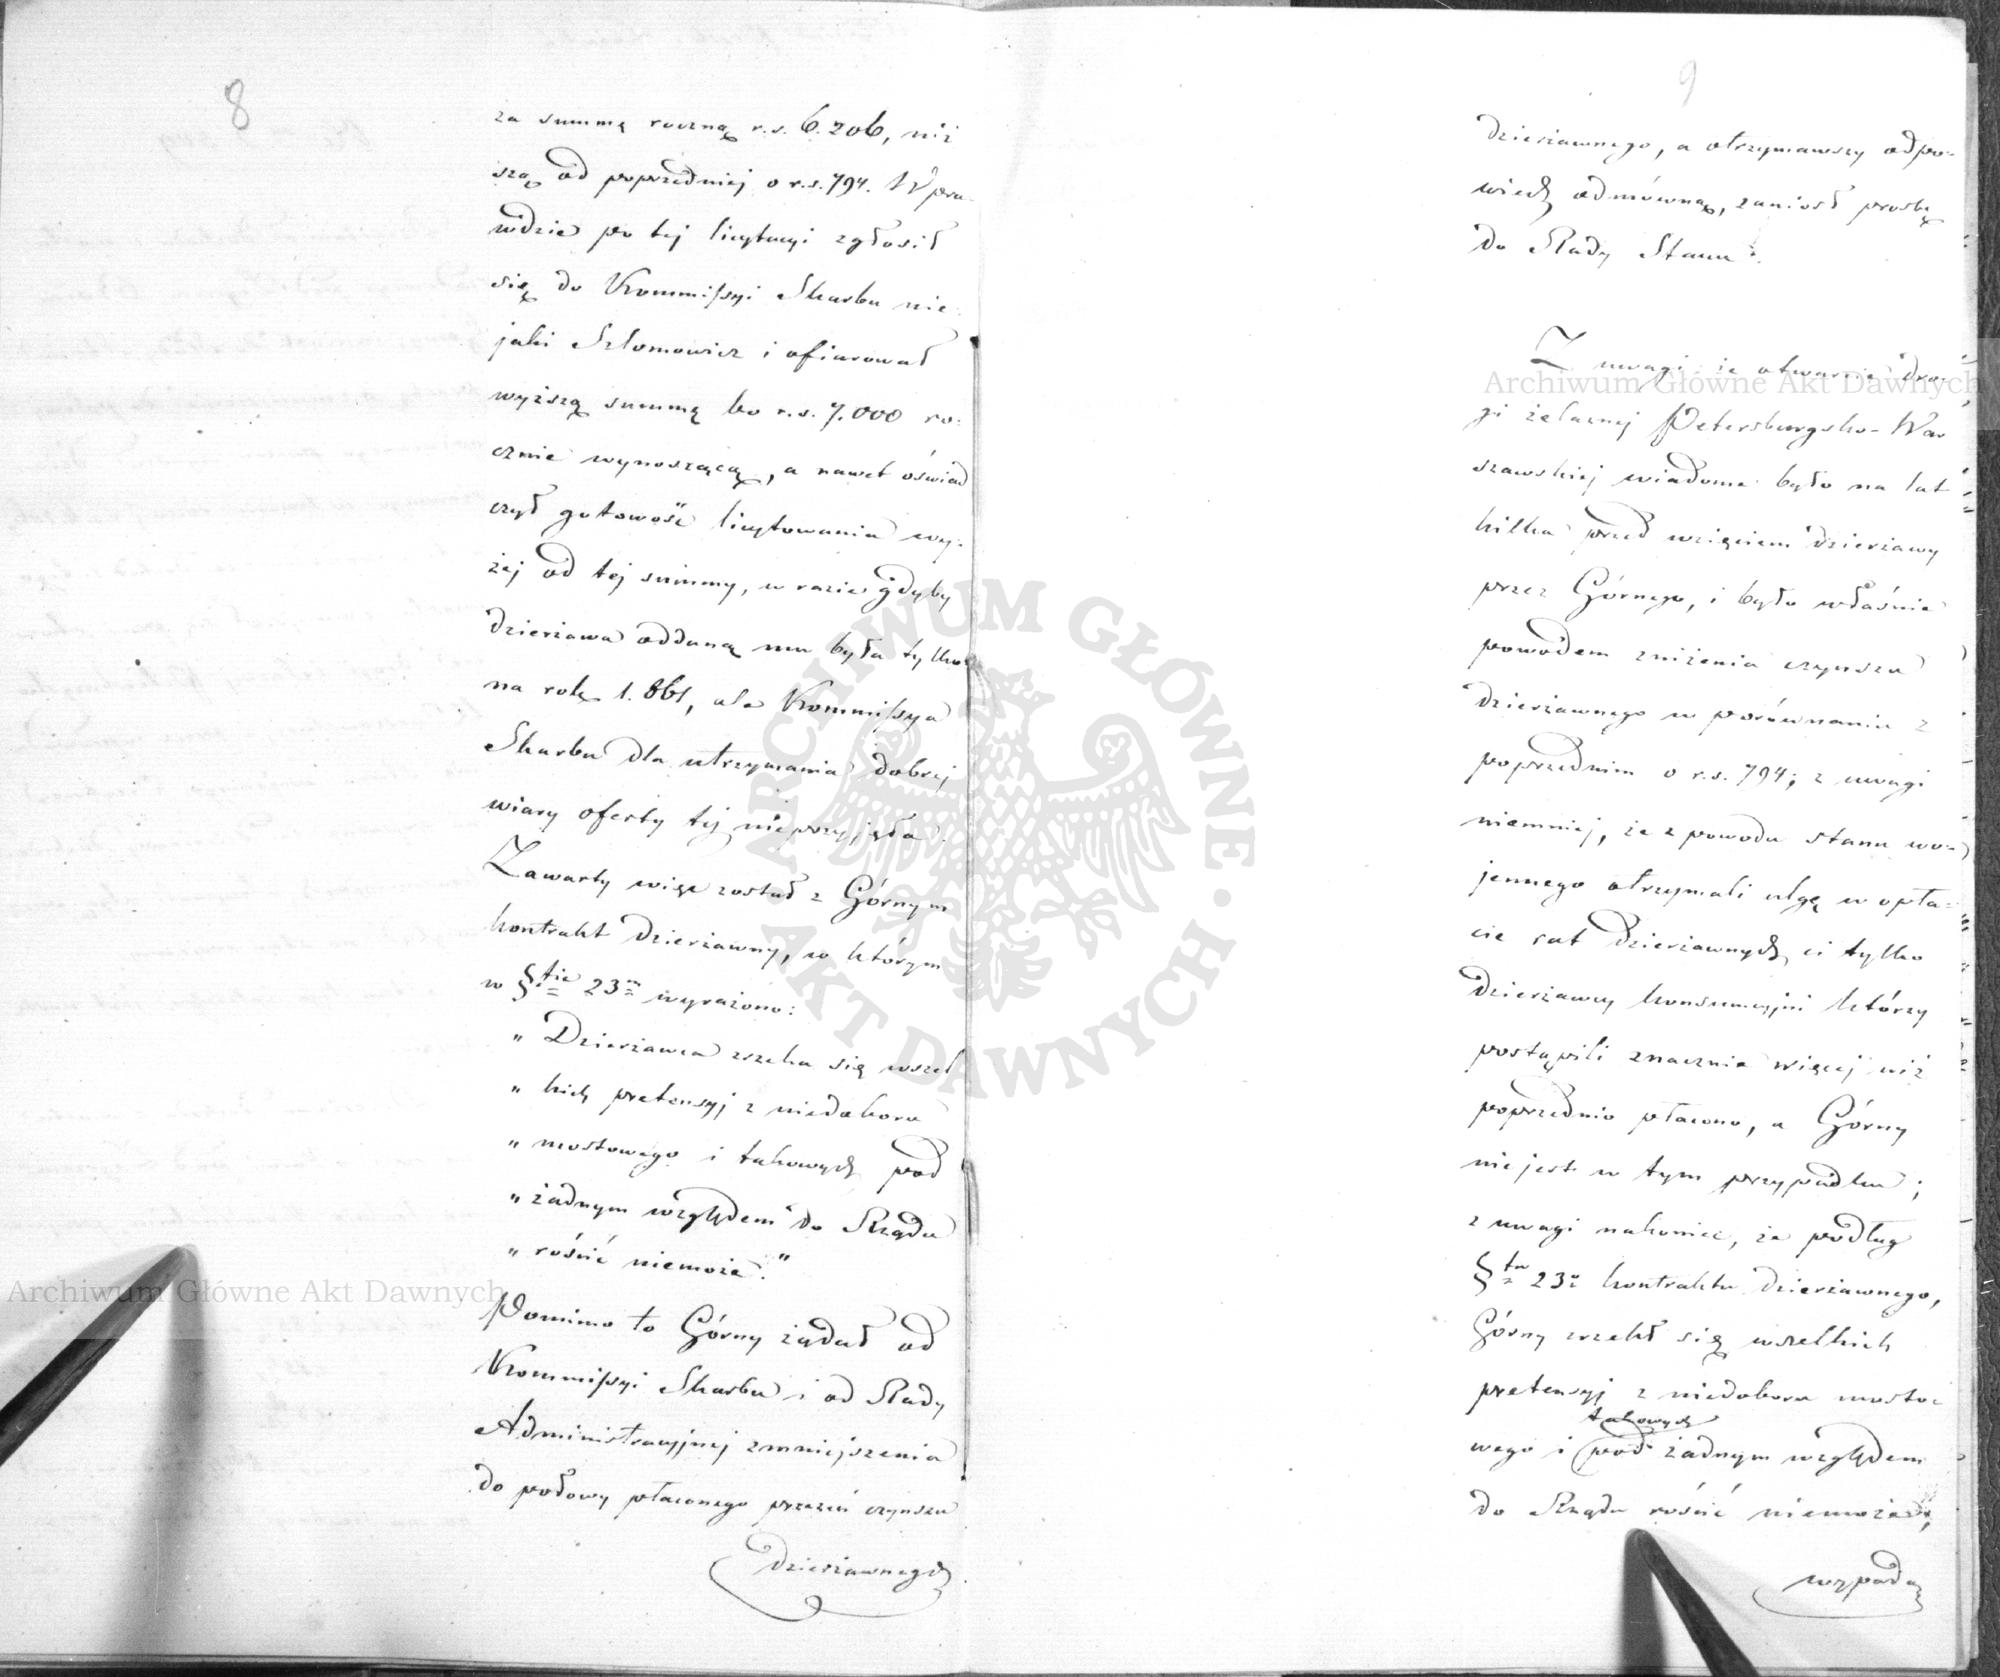 8
za summę roczną r.s. 6.206, niż
szą od poprzedniej o r.s. 794. Wpra-
wdzie po tej licytacyi zgłosił
się do Kommissyi Skarbu nie-
jaki Szlomowicz i ofiarował
wyższą summę bo r.s. 7.000 ro-
cznie wynoszącą, a nawet oświad
czył gotowość licytowania wy-
żej od tej summy, w razie gdyby
dzierżawa oddaną mu była tylko
na rok 1.861, ale Kommissya
Skarbu dla utrzymania dobrej
wiary oferty tej nieprzyjęła.
Zawarty więc został z Górnym
kontrakt dzierżawny, w którym
w §tie 23m wyrażono:
„ Dzierżawca zrzeka się wszel
„ kich pretensyj z niedoboru
„ mostowego i takowych pod
„ żadnym względem do Rządu
„ rościć niemoże."
Pomimo to Górny żądał od
Kommissyi Skarbu i od Rady
Administracyjnej zmniejszenia
do połowy płaconego przezeń czynszu
dzierżawnego
9
dzierżawnego, a otrzymawszy odpo-
wiedź odmówną, zaniósł prośbę
do Rady Stanu.
Z uwagi że otwarcie dro-
gi żelaznej Petersburgsko-War
szawskiej wiadome było na lat
kilka przed wzięciem dzierżawy
przez Górnego, i było właśnie
powodem zniżenia czynszu
dzierżawnego w porównaniu z
poprzednim o r.s. 794; z uwagi
niemniej, że z powodu stanu wo-
jennego otrzymali ulgę w opła-
cie rat dzierżawnych ci tylko
dzierżawcy konsumcyjni którzy
postąpili znacznie więcej niż
poprzednio płacono, a Górny
niejest w tym przypadku;
z uwagi nakoniec, że podług
§tu 23o kontraktu dzierżawnego,
Górny zrzekł się wszelkich
pretensyj z niedoboru mosto-
takowych
wego i pod żadnym względem
do Rządu rościć niemoże;
wypada
Archiwum Główne Akt Dawnych
Archiwum Główne Akt Dawnych
ARCHIWUM GŁÓWNE · AKT DAWNYCH ·